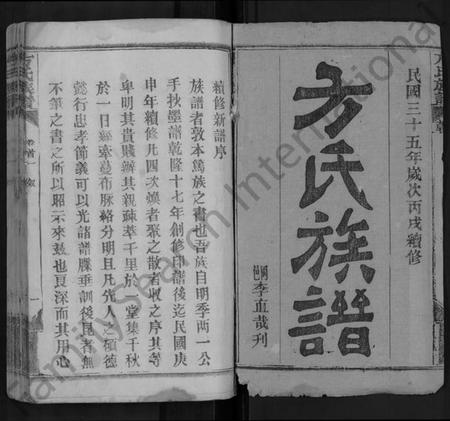 民國三十五年歲次丙戌續修
方氏族譜
李直哉刊
續修新譜序
族譜者敦本篤族之書也吾族自明季兩一公
手抄墨譜乾隆十七年創修印譜後迄民國庚
申年續修凡四次煥者聚之散者收之序其等
卑明其貴賤辦其親疎萃千里於一堂集千秋
於一日經牽蔓布脉絡分明且凡先人之積德
懿行忠孝節義可以光諸譜牒垂訓後昆者無
不筆之書之所以昭示來茲也夏深而其用心
FamilySearch International